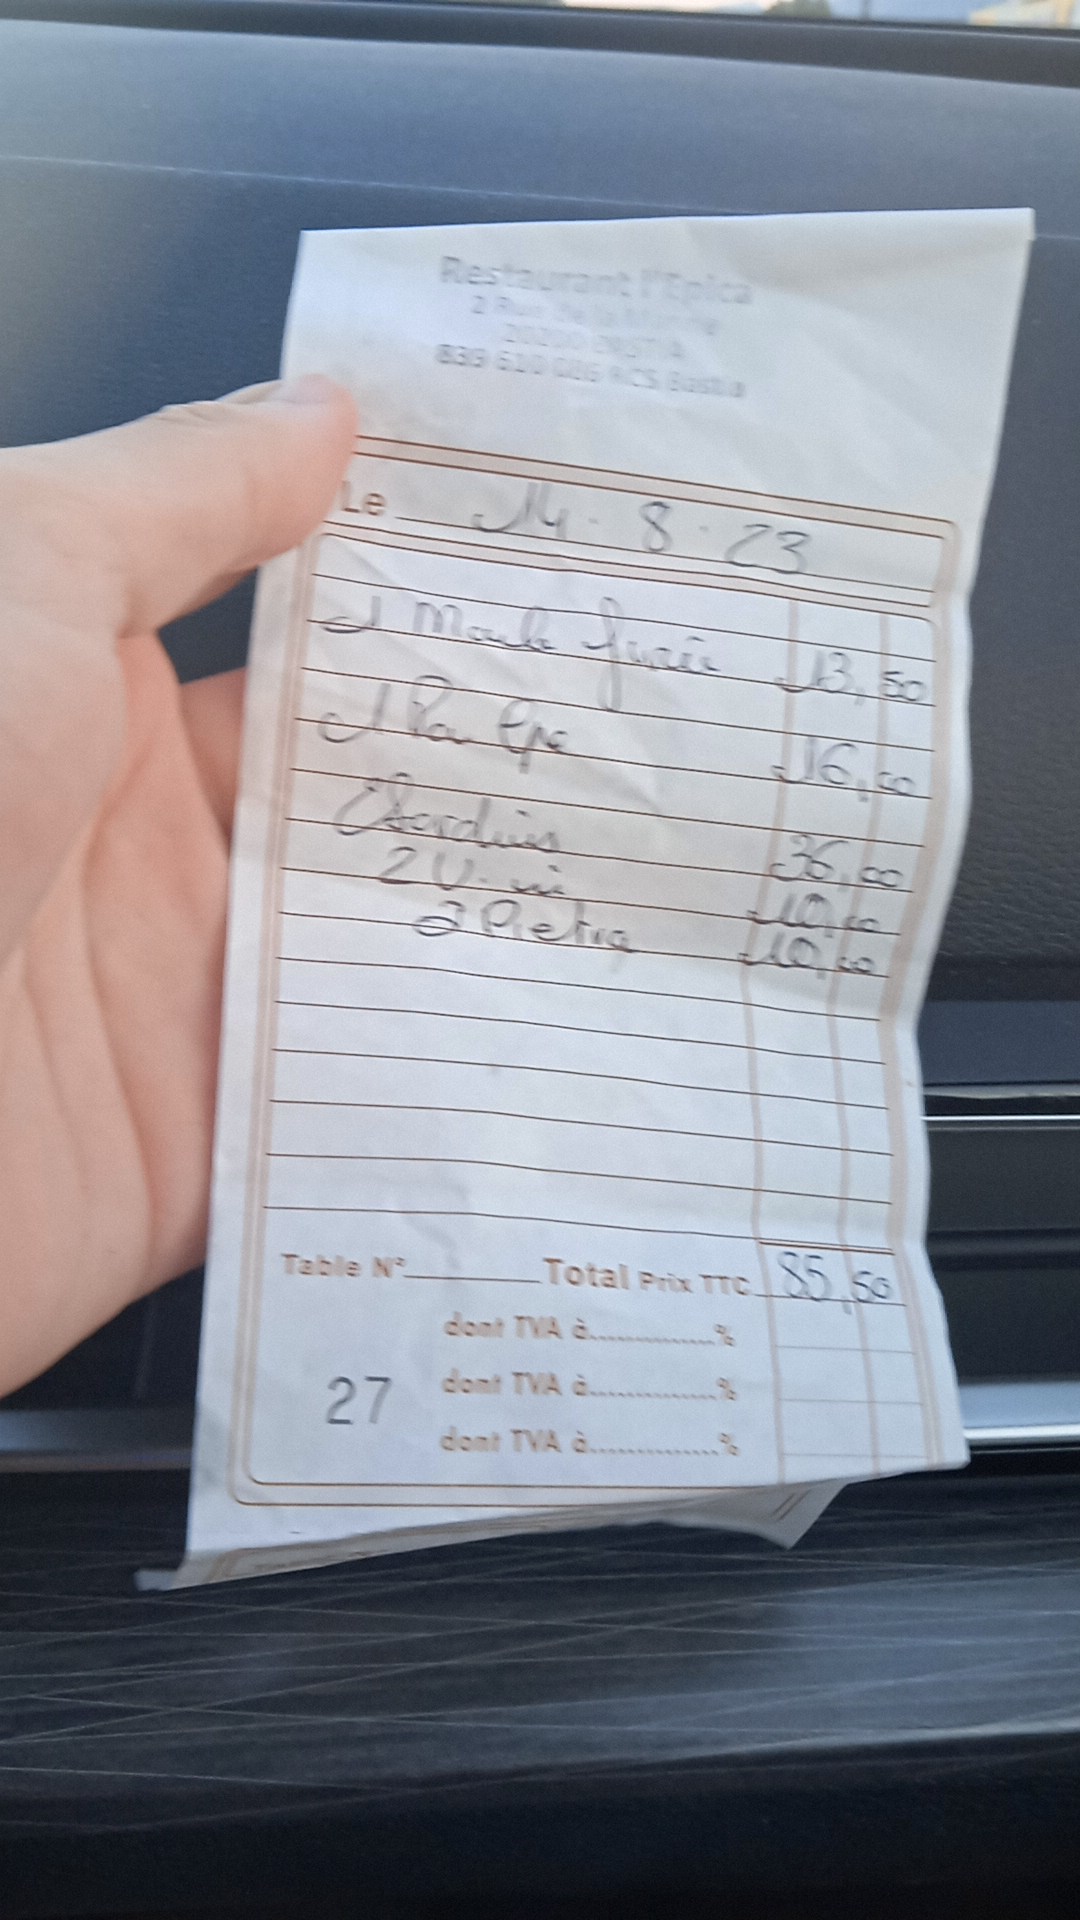 Restaurant l'Epica
2 Rue de la Marine
20200 BASTIA
839 610 026 RCS Bastia
Le 14.8.23
1 Moule 13,50
1 Poulpe 16,00
Sardines 36,00
2 V. 10,00
2 Pietra 10,00
Table N° Total Prix TTC 85,50
dont TVA à..............%
27 dont TVA à..............%
dont TVA à..............%